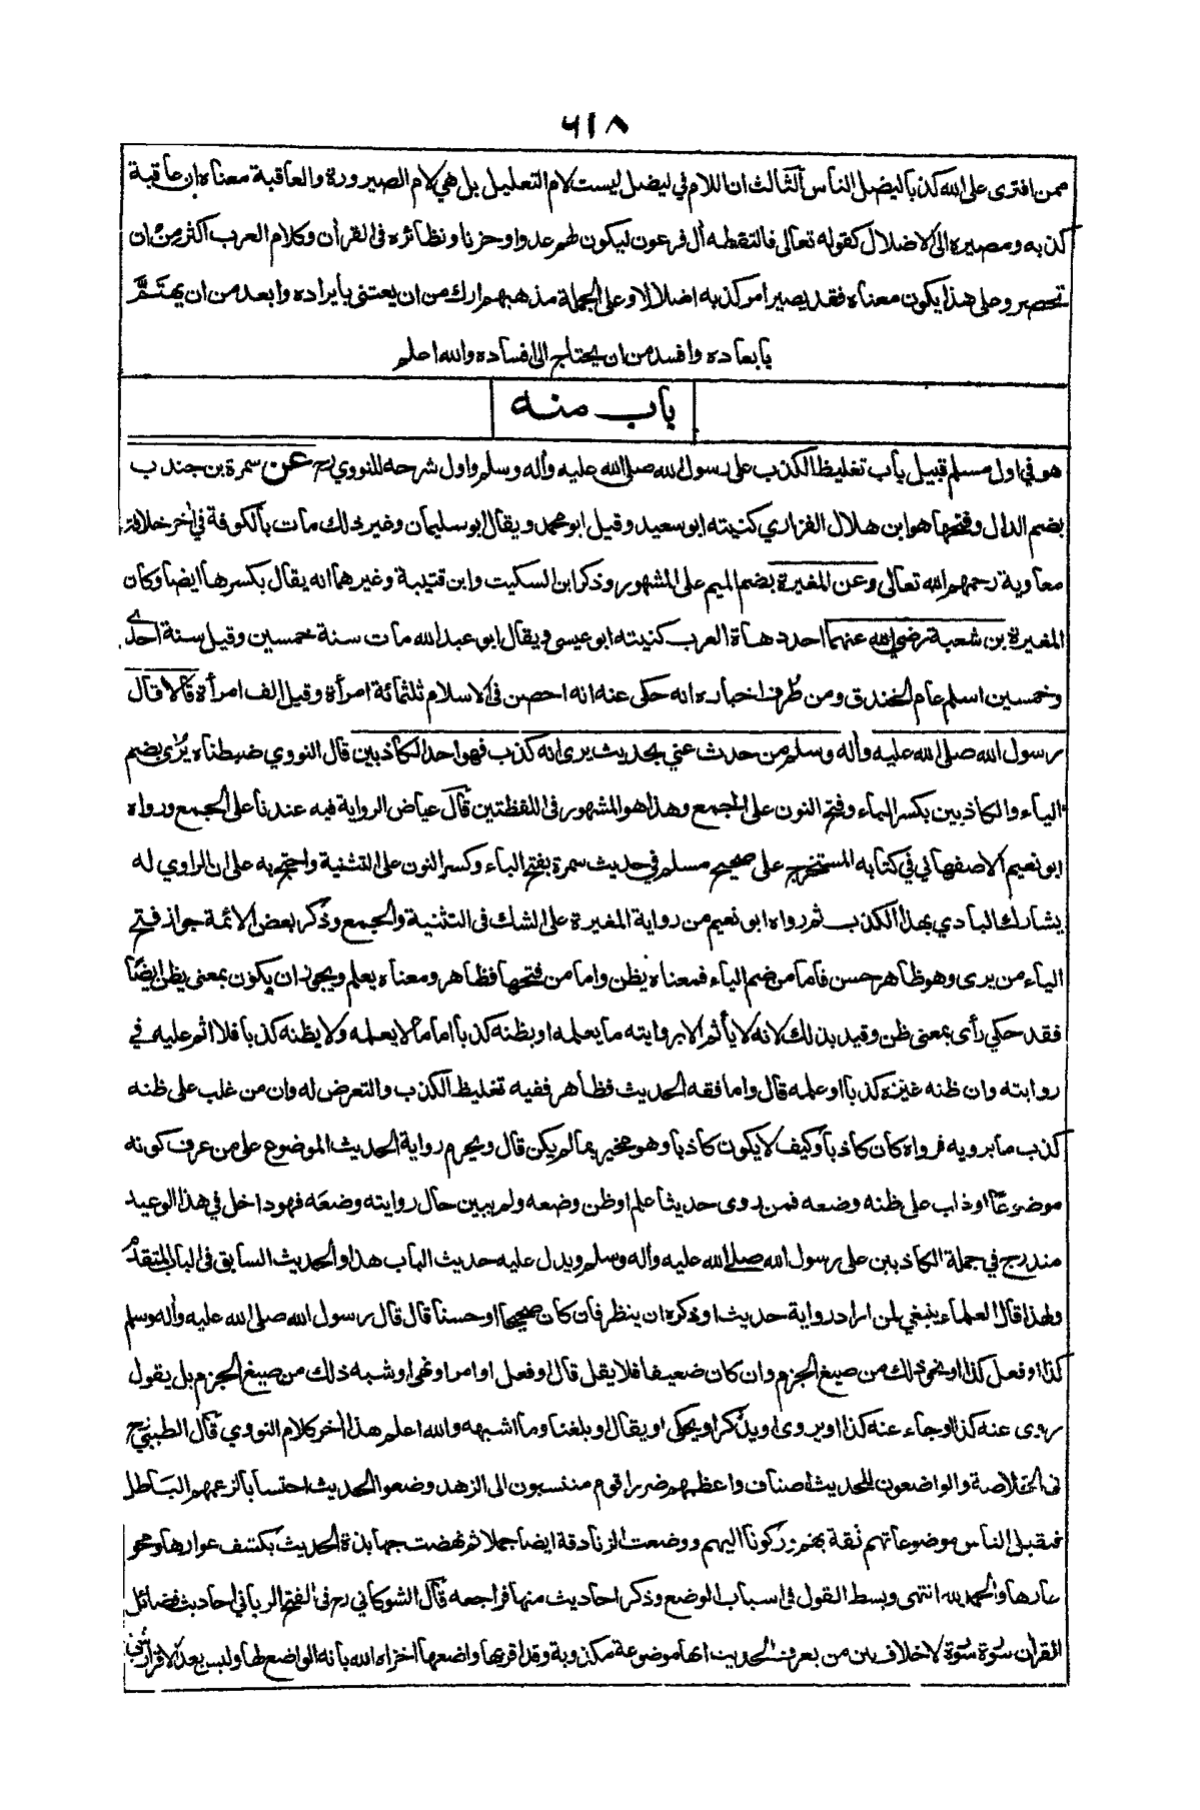 ٦١٨
ممن افترى على الله كذبا ليضل الناس الثالث ان اللام في ليضل ليست لام التعليل بل هي لام الصيرورة والعاقبة معناه ان عاقبة
كذبه ومصيره الى الاضلال كقوله تعالى فالتقطه أل فرعون ليكون لهم عدوا وحزنا ونظائره فى القرأن وكلام العرب اكثر من ان
تحصر وعلى هذا يكون معناه فقد يصير امر كذبه اضلالا وعلى الجملة مذهبهم ارك من ان يعتنى بايراده وابعد من ان يهتم
بابعاده وافسد من ان يحتاج الى افساده والله اعلم
باب منه
هو في اول مسلم قبيل باب تغليظ الكذب على رسول الله صلى الله عليه وأله وسلم واول شرحه للنووي رح عن سمرة بن جندب
بضم الدال وفتحها هو ابن هلال الفزاري كنيته ابو سعيد وقيل ابو محمد ويقال ابو سليمان وغير ذلك مات بالكوفة في أخر خلافة
معاوية رحمهم الله تعالى وعن المغيرة بضم الميم على المشهور وذكر ابن السكيت وابن قتيبة وغيرهما انه يقال بكسرها ايضا وكان
المغيرة بن شعبة رضي الله عنهما احد دهاة العرب كنيته ابو عيسى ويقال ابو عبد الله مات سنة خمسين وقيل سنة احدى
وخمسين اسلم عام الخندق ومن طرف اخباره انه حكى عنه انه احصن فى الاسلام ثلثمائة امرأة وقيل الف امرأة قالا قال
رسول الله صلى الله عليه وأله وسلم من حدث عني بحديث يرى انه كذب فهو احد الكاذبين قال النووي ضبطناه يرى بضم
الياء والكاذبين بكسر الباء وفتح النون على الجمع وهذا هو المشهور فى اللفظتين قال عياض الرواية فيه عندنا على الجمع ورواه
ابو نعيم الاصفهاني في كتابه المستخرج على صحيح مسلم في حديث سمرة بفتح الباء وكسر النون على التثنية واحتج به على ان الراوي له
يشارك البادي بهذا الكذب ثم رواه ابو نعيم من رواية المغيرة على الشك فى التثنية والجمع وذكر بعض الائمة جواز فتح
الياء من يرى وهو ظاهر حسن فأما من ضم الياء فمعناه يظن واما من فتحها فظاهر ومعناه يعلم ويجوز ان يكون بمعنى يظن ايضا
فقد حكي رأى بمعنى ظن وقيد بذلك لانه لا يأثم الا بروايته ما يعلمه او يظنه كذبا اما ما لا يعلمه ولا يظنه كذبا فلا اثم عليه في
روايته وان ظنه غيره كذبا او علمه قال واما فقه الحديث فظاهر ففيه تغليظ الكذب والتعرض له وان من غلب على ظنه
كذب ما يرويه فرواه كان كاذبا وكيف لا يكون كاذبا وهو مخبر بما لم يكن قال ويحرم رواية الحديث الموضوع على من عرف كونه
موضوعا او غلب على ظنه وضعه فمن روى حديثا علم او ظن وضعه ولم يبين حال روايته وضعه فهو داخل في هذا الوعيد
مندرج في جملة الكاذبين على رسول الله صلى الله عليه وأله وسلم ويدل عليه حديث الباب هذا والحديث السابق فى الباب المتقدم
ولهذا قال العلماء ينبغي لمن اراد رواية حديث او ذكره ان ينظر فان كان صحيحا او حسنا قال قال رسول الله صلى الله عليه وأله وسلم
كذا او فعل كذا او نحو ذلك من صيغ الجزم وان كان ضعيفا فلا يقل قال او فعل او امر او نهى او شبه ذلك من صيغ الجزم بل يقول
روى عنه كذا او جاء عنه كذا او يروى او يذكر او يحكى او يقال او بلغنا وما اشبهه والله اعلم هذا أخر كلام النووي قال الطيبي رح
فى الخلاصة والواضعون للحديث اصناف واعظمهم ضررا قوم منتسبون الى الزهد وضعوا الحديث احتسابا لزعمهم الباطل
فتقبل الناس موضوعاتهم ثقة بهم وركونا اليهم ووضعت الزنادقة ايضا جملا ثم نهضت جهابذة الحديث بكشف عوارها ومحو
عارها والحمد لله انتهى وبسط القول فى اسباب الوضع وذكر احاديث منها فراجعه قال الشوكاني رح فى الفتح الرباني احاديث فضائل
القرأن سورة سورة لا خلاف بين من يعرف الحديث انها موضوعة مكذوبة وقد اقر بها واضعها اخزاه الله بانه الواضع لها وليس بعد الاقرار شئ